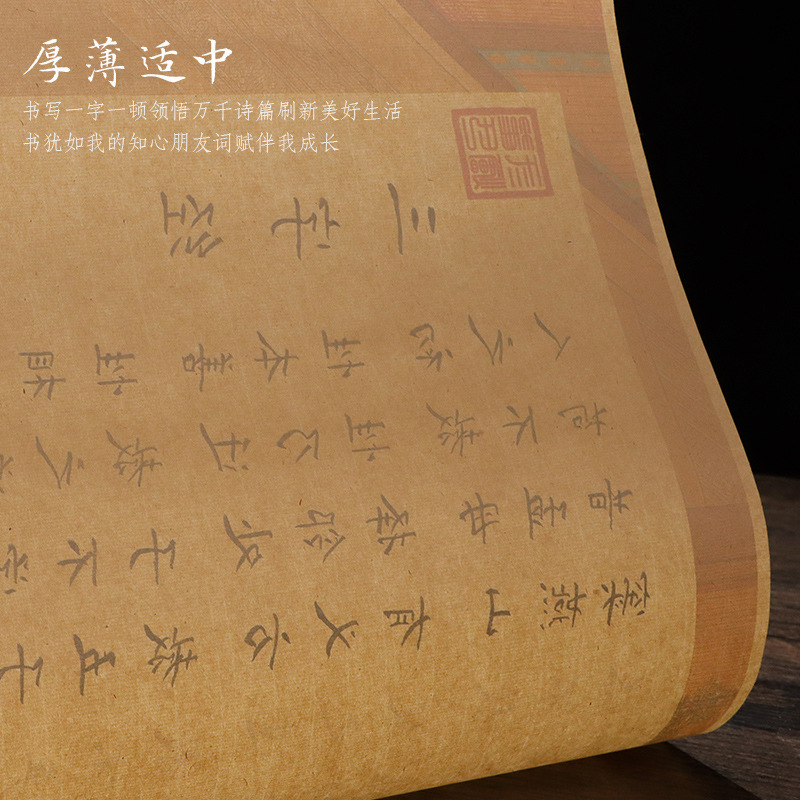 厚薄适中
书写一字一顿领悟万千诗篇刷新美好生活
书犹如我的知心朋友词赋伴我成长
三字经
人之初性本善性相
苟不教性乃迁教之
昔孟母择邻处子不
窦燕山有义方教五子